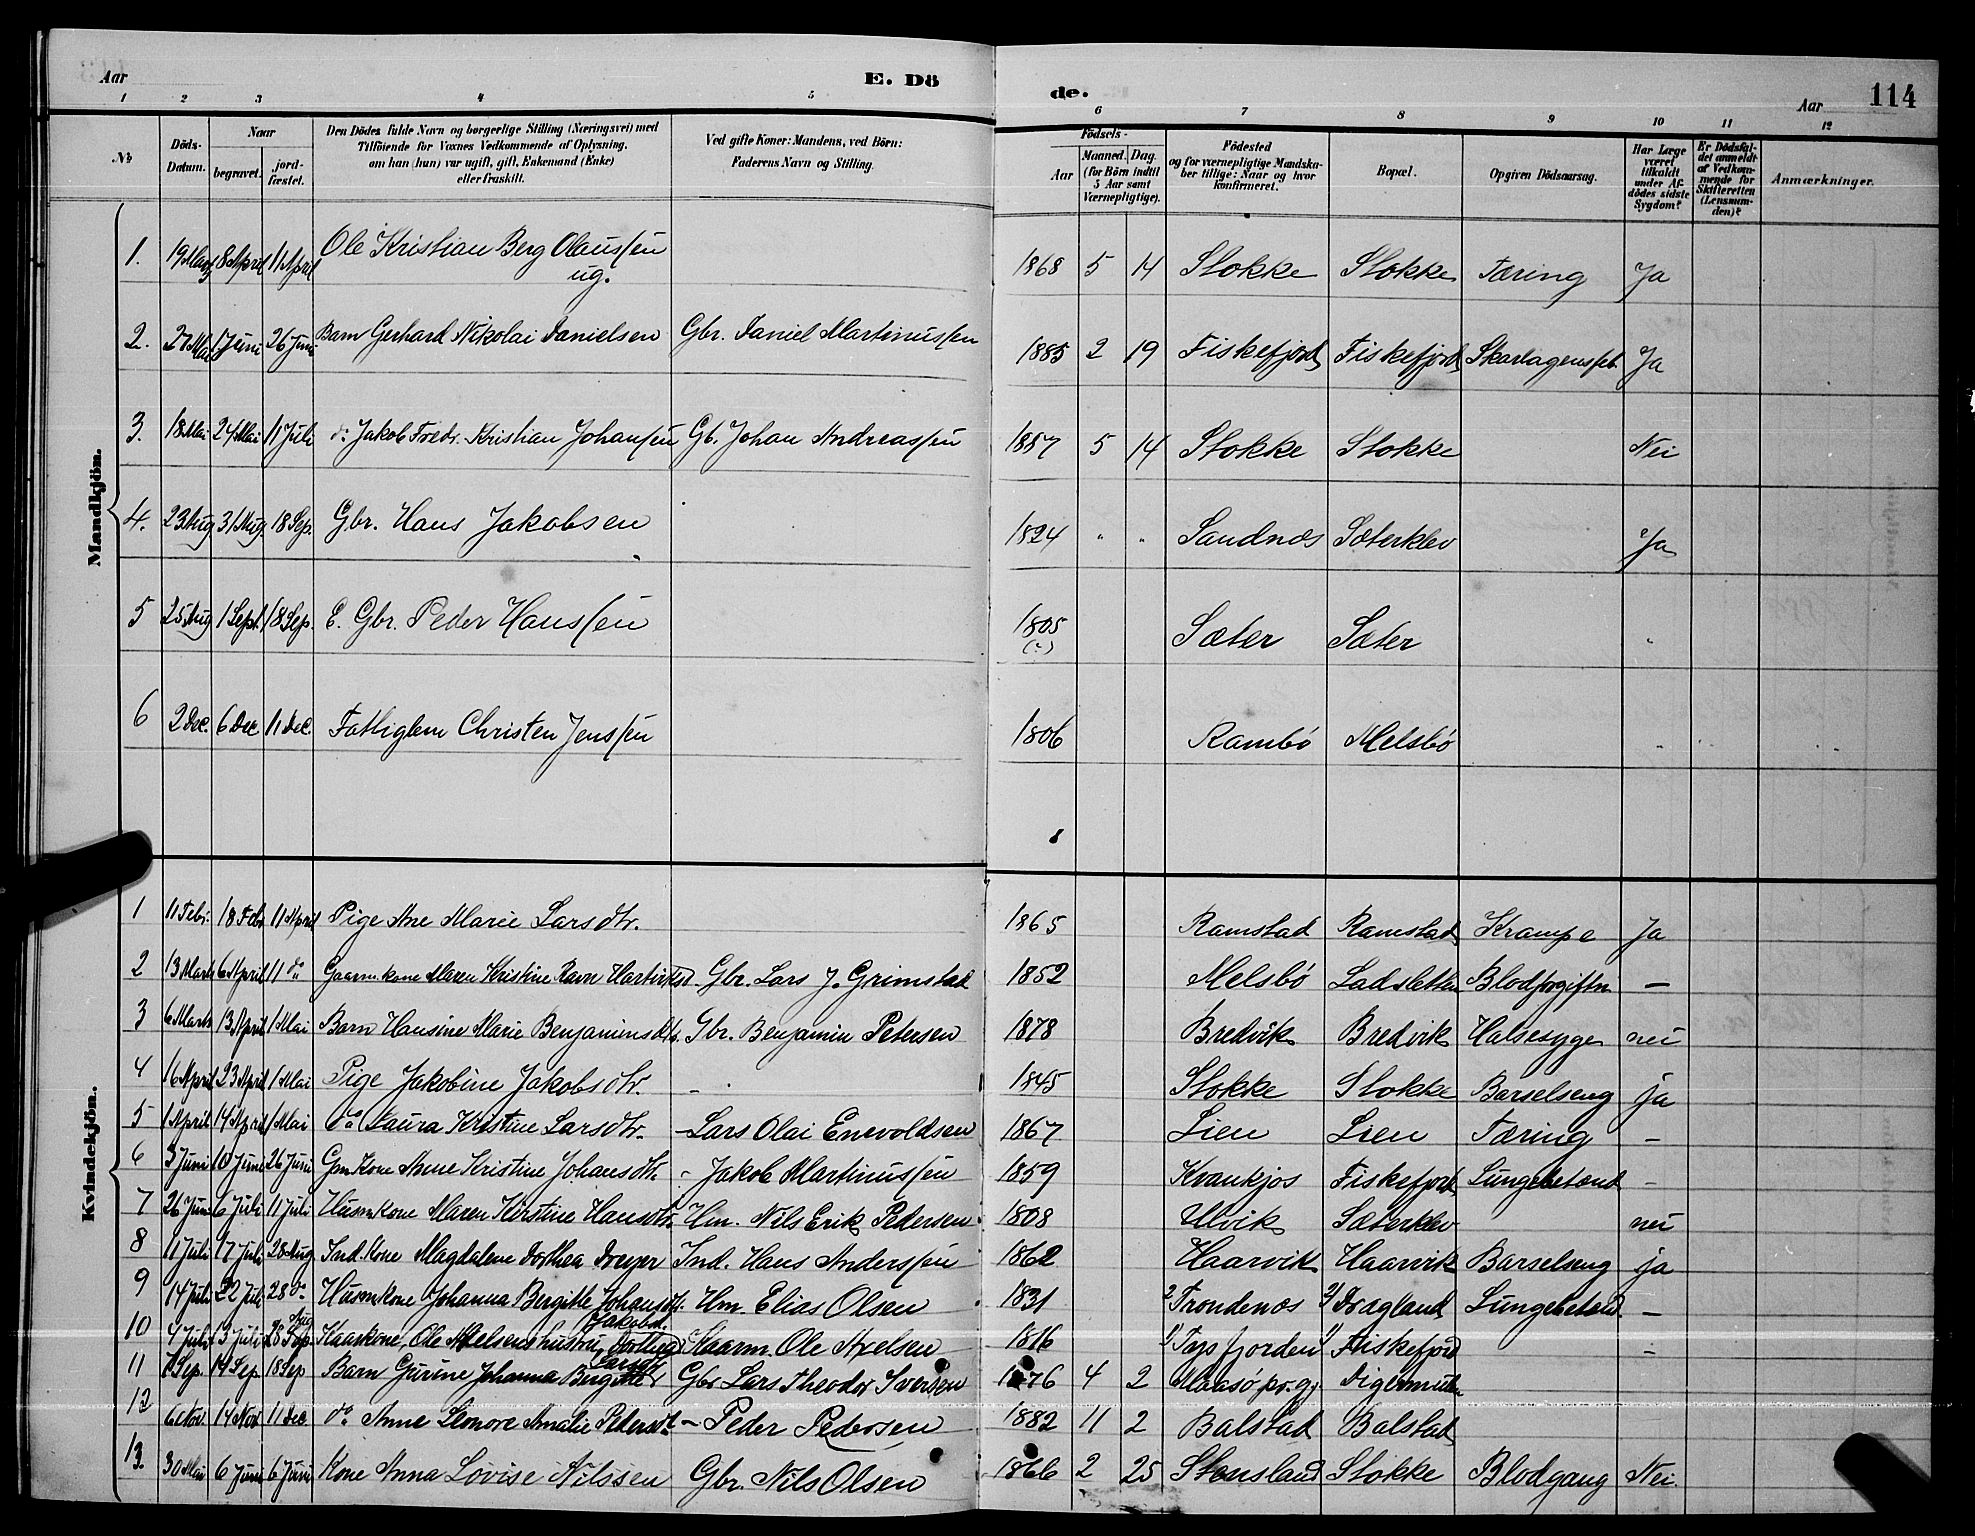 Aar
E. Dö
de.
Aar
114
1 2 3 4 5 6 7 8 9 10 11 12
№
Döds-Datum.
Naar
begravet.
jord-fæstet.
Den Dödes fulde Navn og borgerlige Stilling (Næringsvei) med
Tilföiende for Voxnes Vedkommende af Oplysning,
om han (hun) var ugift, gift, Enkemand (Enke)
eller fraskilt.
Ved gifte Koner: Mandens, ved Börn:
Faderens Navn og Stilling.
Födsels-
Aar
Maaned. Dag.
(for Börn indtil
5 Aar samt
Værnepligtige).
Födested
og for værnepligtige Mandska-
ber tillige: Naar og hvor
konfirmeret.
Bopæl.
Opgiven Dödsaarsag.
Har Læge
været
tilkaldt
under Af-
dödes sidste
Sygdom?
Er Dödsfal-
det anmeldt
af Vedkom-
mende for
Skifteretten
(Lensman-
den)?
Anmærkninger.
Mandkjön.
1. 19 Marts 8 April 11 April Ole Kristian Berg Olaussen ug. 1868 5 14 Stokke Stokke Tæring Ja
2. 27 Mai 1 Juni 26 Juni Barn Gerhard Nikolai Danielsen Gbr. Daniel Martinussen 1885 2 19 Fiskefjord Fiskefjord Skarlagensfeb. Ja
3. 18 Mai 24 Mai 11 Juli do. Jakob Fredr. Kristian Johansen Gb. Johan Andreassen 1887 5 14 Stokke Stokke Nei
4. 23 Aug 31 Aug. 18 Sep. Gbr. Hans Jakobsen 1824 " " Sandnæs Sæterklev Ja
5 25 Aug 1 Sept. 18 Sep. E. Gbr. Peder Hanssen 1805 (?) Sæter Sæter "
6 2 Dec. 6 Dec 11 Dec. Fattiglem Christen Jenssen 1806 Rambö Melsbö " "
Kvindekjön.
1 11 Febr. 18 Febr 11 April Pige Ane Marie Larsdtr. 1865 Ramstad Ramstad Krampe Ja
2 13 Marts 6 April 11 do Gaarmkone Maren Kristine Ravn Hartviksd. Gbr. Lars J. Grimstad 1852 Melsbö Ladsletten Blodforgiftn —
3 6 Marts 13 April 1 Mai Barn Hansine Marie Benjaminsdtr. Gbr. Benjamin Petersen 1878 Bredvik Bredvik Halsesyge nei
4 16 April 23 April 1 Mai Pige Jakobine Jakobsdtr. - 1845 Stokke Stokke Barselseng ja
5 1 April 14 April 1 Mai do Laura Kristine Larsdtr. - Lars Olai Enevoldsen 1867 Lien Lien Tæring -
6 3 Juni 10 Juni 26 Juni Gm Kone Anne Kristine Johansdtr. - Jakob Martinussen 1859 Kvankjos Fiskefjord Lungebetænd -
7 26 Juni 6 Juli 11 Juli Husmkone Maren Kirstine Hansdtr. Hm. Nils Erik Pedersen 1808 Ulvik Sæterklev nei
8 11 Juli 17 Juli 28 Aug Ind. Kone Magdalene Dorthea Dreyer Ind. Hans Anderssen 1862 Haarvik Haarvik Barselseng ja
9 14 Juli 22 Juli 28 do Husmkone Johanna Bergitte Johansdtr. Hm. Elias Olsen 1831 2 Trondenæs 2) Dragland Lungebetænd —
10 4 Juli 13 Juli 28 Sep. Aug Kaarkone, Ole Axelsens hustru Dorthea Jakobd. Kaarm. Ole Axelsen 1816 1) Tysfjorden 1) Fiskefjord -
11 7 Sep. 14 Sep 18 Sep Barn Gurine Johanna Bergitte Larsdtr Gbr Lars Theodor Sversen 1876 4 2 Maasö pr.g. Digermulen
12 6 Nov. 14 Nov 11 Dec do Anne Leonore Amalie Pedersdtr - Peder Pedersen 1882 11 2 Balstad Balstad
13. 30 Mai 6 Juni 6 Juni Kone Anna Lovise Nilssen Gbr. Nils Olsen 1866 2 25 Stensland Stokke Blodgang Nei.